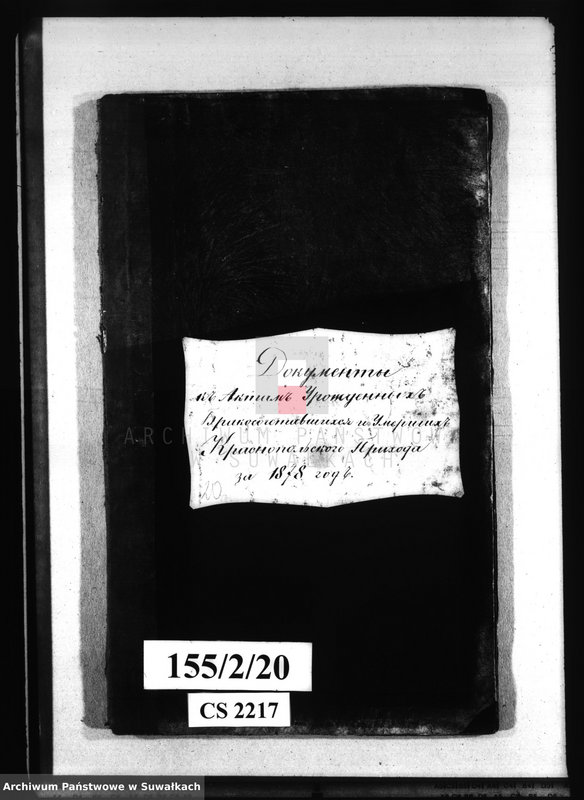 Документы
къ Актамъ Урожденныхъ
Бракосочетавшихся и Умершихъ
Красонопольскаго Прихода
за 1878 годъ.
20
ARCHIWUM PAŃSTWOWE
W SUWAŁKACH
155/2/20
CS 2217
Archiwum Państwowe w Suwałkach